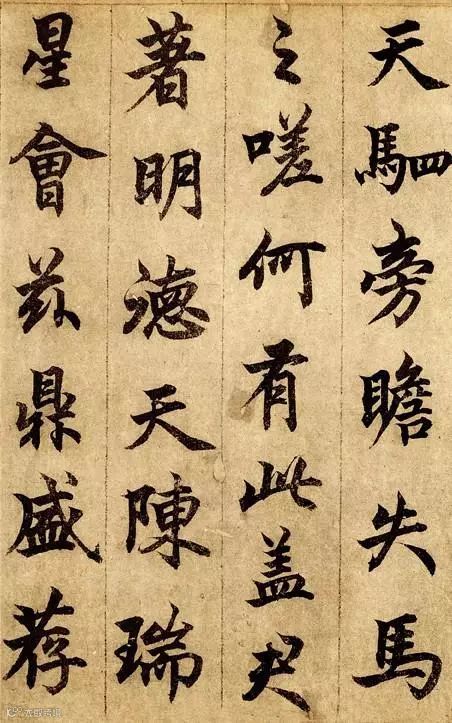 天駟旁瞻失馬
之嗟何有此盖君
著明德天陳瑞
星會兹鼎盛荐